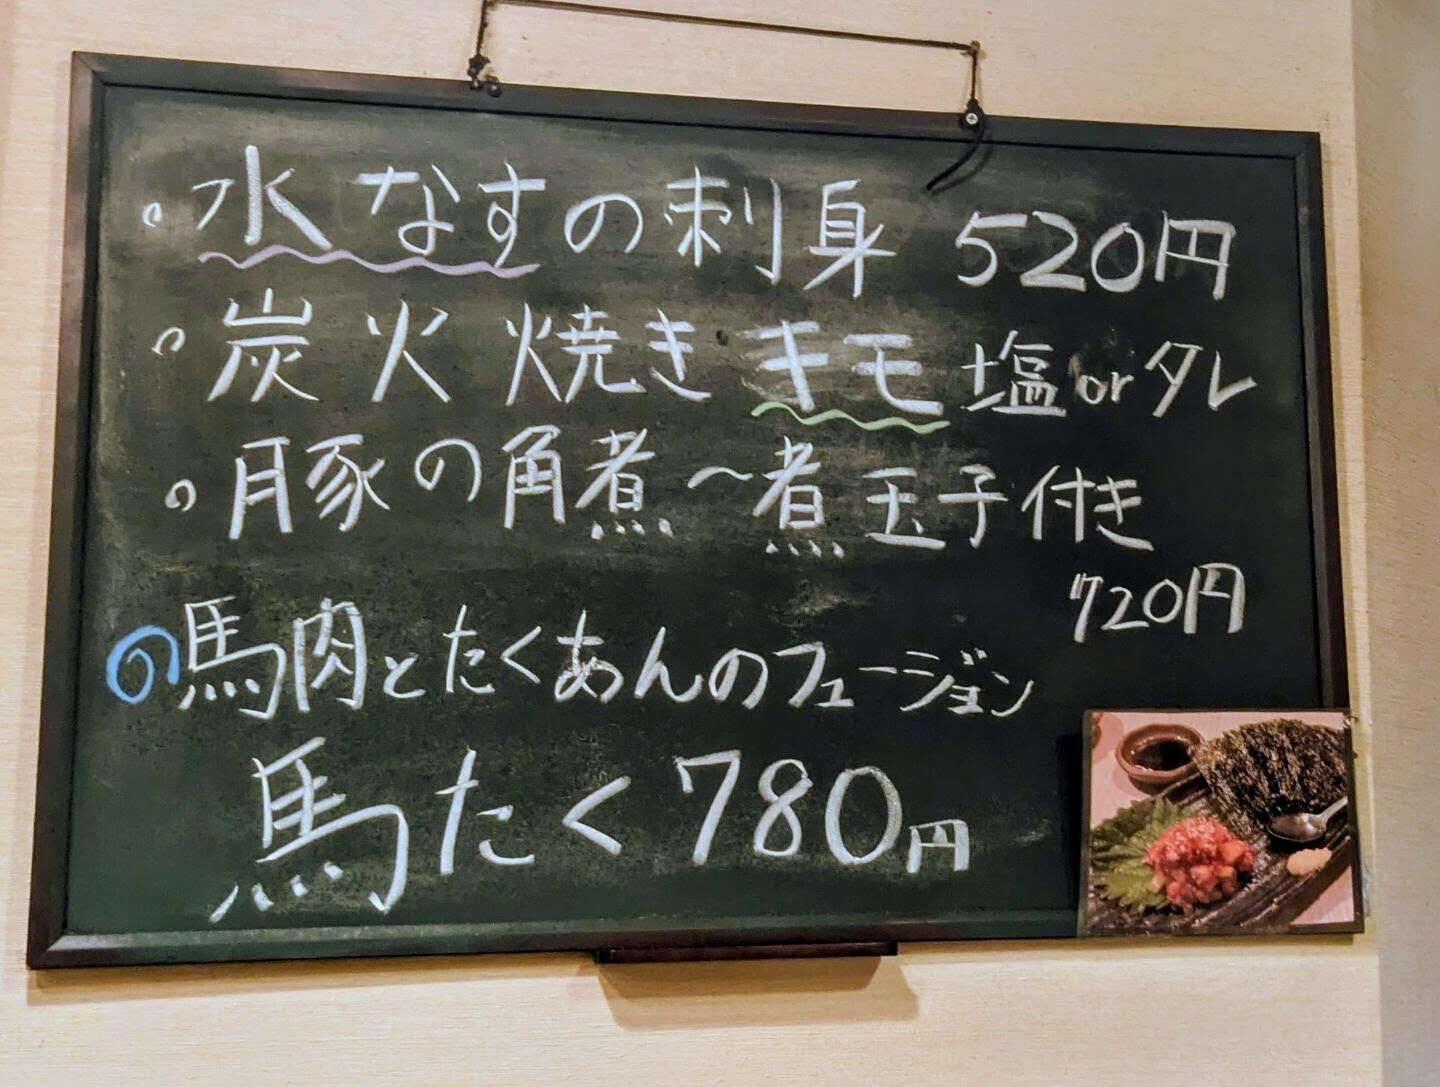 水なすの刺身 520円
炭火焼き キモ 塩 or タレ
豚の角煮〜煮玉子付き
720円
馬肉とたくあんのフュージョン
馬たく 780円